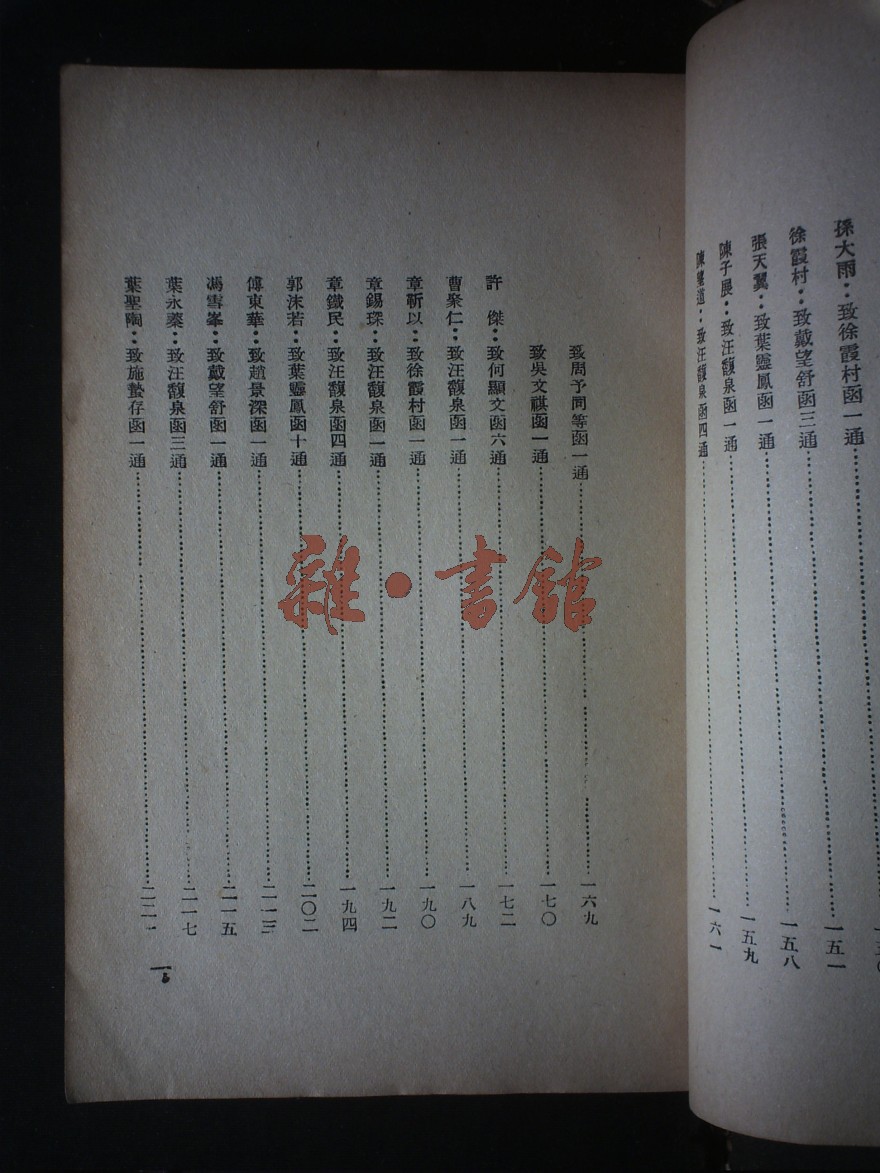 孫大雨：致徐霞村函一通……一五一
徐霞村：致戴望舒函三通……一五一
張天翼：致葉靈鳳函一通……一五八
陳子展：致汪馥泉函一通……一五九
陳望道：致汪馥泉函四通……一六一
致周予同等函一通……一六九
致吳文祺函一通……一七〇
許　傑：致何顯文函六通……一七二
曹聚仁：致汪馥泉函一通……一八九
章靳以：致徐霞村函一通……一九〇
章錫琛：致汪馥泉函一通……一九二
章鐵民：致汪馥泉函四通……一九四
郭沫若：致葉靈鳳函十通……二〇二
傅東華：致趙景深函一通……二一三
馮雪峯：致戴望舒函一通……二一五
葉永蓁：致汪馥泉函三通……二一七
葉聖陶：致施蟄存函一通……二二一
5
雜·書館